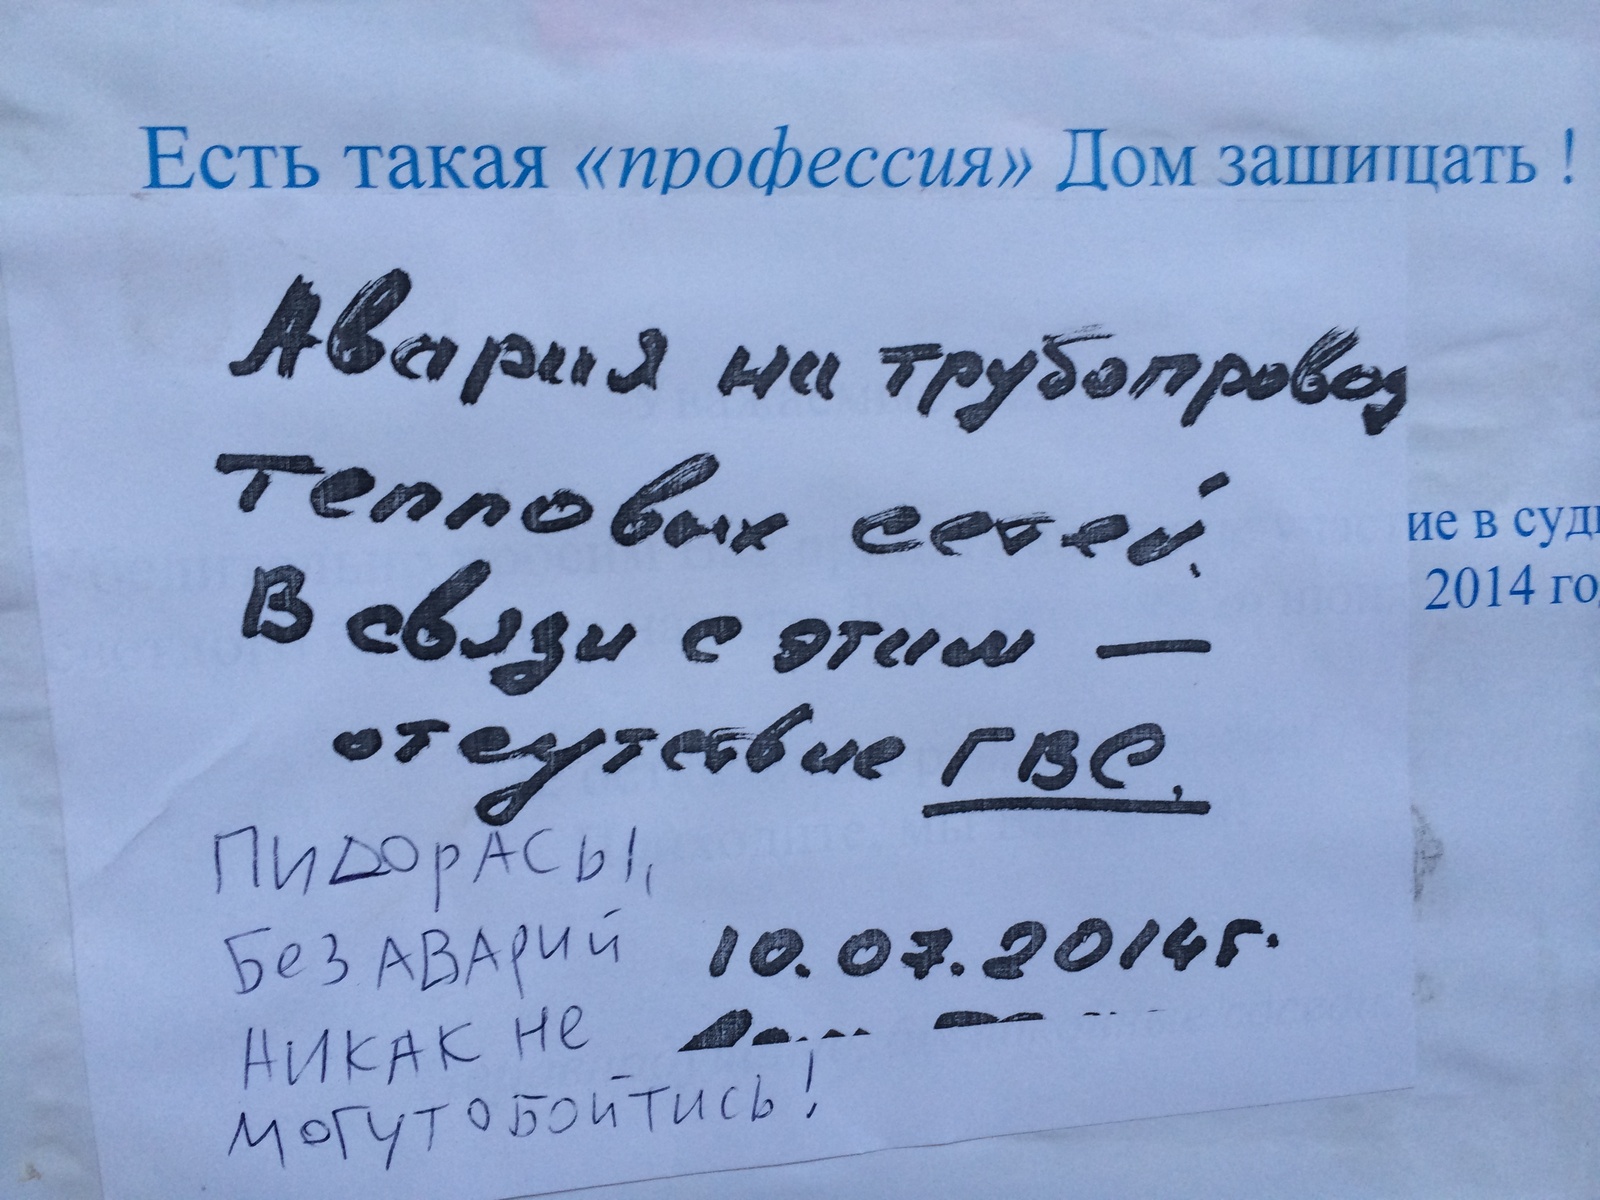 Есть такая «профессия» Дом защищать !
Авария на трубопровод
тепловых сетей.
ие в суд
2014 го
В связи с этим —
отсутствие ГВС.
ПИДОРАСЫ,
БеЗ АВАРИЙ
10.07.2014г.
НИКАК Не
МОГУТ ОБОЙТИСЬ!